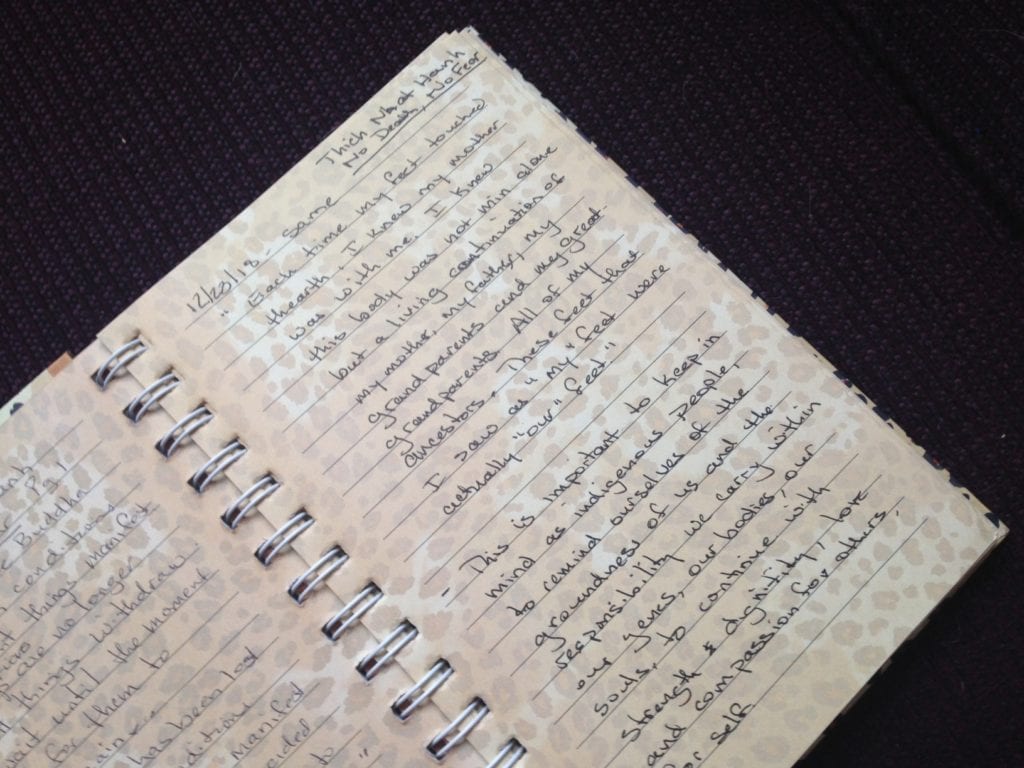 nh
Pg. 1
Buddha
conditions
things manifest
no longer
things withdraw.
wait until the moment
for them to
has been lost
manifest
to "
Thich Nhat Hanh
No Death, No Fear
12/28/13. Same
"Each time my feet touched
the earth I knew my mother
was with me. I knew
this body was not min alone
but a living continuation of
my mother, my father, my
grandparents and my great-
grandparents. All of my
ancestors. These feet that
I saw as "my" feet were
actually "our" feet"
- This is important to keep in
mind as indigenous people,
to remind ourselves of the
groundness of us and the
responsibility we carry within
our genes, our bodies, our
souls, to continue with
strength & dignitity, love
and compassion for others,
for self.